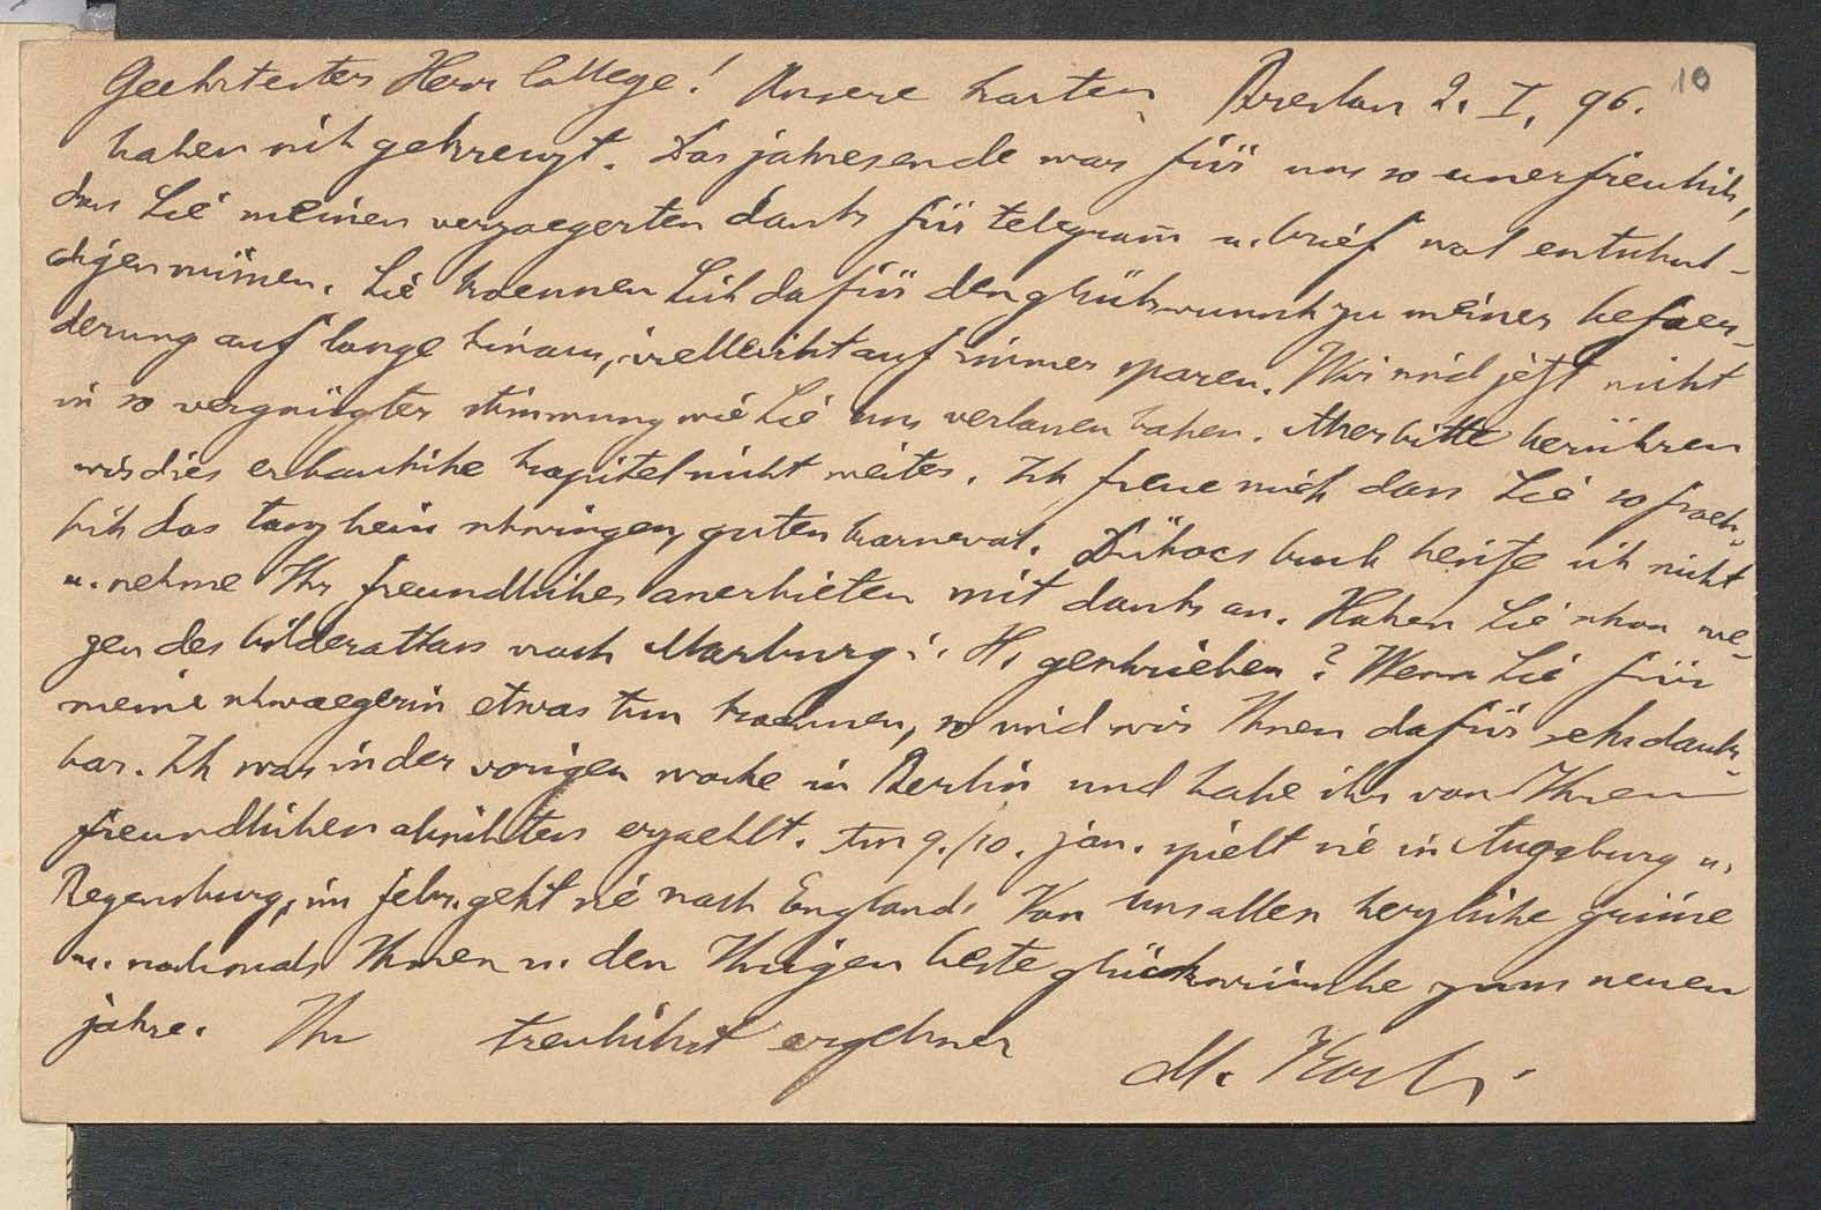 Geehrtester Herr College! Unsere karten Breslau 2. I. 96. 10
haben sich gekreuzt. Das jahresende war für uns so unerfreulich,
dass Sie meinen verzoegerten dank für telegram̅ u. brief wol entschul-
digen müssen. Sie koennen Sich dafür den glückwunsch zu meiner befoer-
derung auf lange hinaus, vielleicht auf immer sparen. Wir sind jetzt nicht
in so vergnügter stimmung wie Sie uns verlassen haben. Aber bitte berühren
wir dies erbauliche kapitel nicht weiter. Ich freue mich dass Sie so froeh-
lich das tanzbein schwingen, guten karneval. Dühocs buch besitze ich nicht
u. nehme Ihr freundliches anerbieten mit dank an. Haben Sie schon we-
gen des bilderatlass nach Marburg i. H. geschrieben? Wenn Sie für
meine schwaegerin etwas tun koennen, so sind wir Ihnen dafür sehr dank-
bar. Ich war in der vorigen woche in Berlin und habe ihr von Ihren
freundlichen absichten erzaehlt. Am 9./10. jan. spielt sie in Augsburg u.
Regensburg, im febr. geht sie nach England. Von uns allen herzliche grüsse
u. nochmals Ihnen u. den Ihrigen beste glückwünsche zum neuen
jahre. Ihr treulichst ergebner
M. Koch